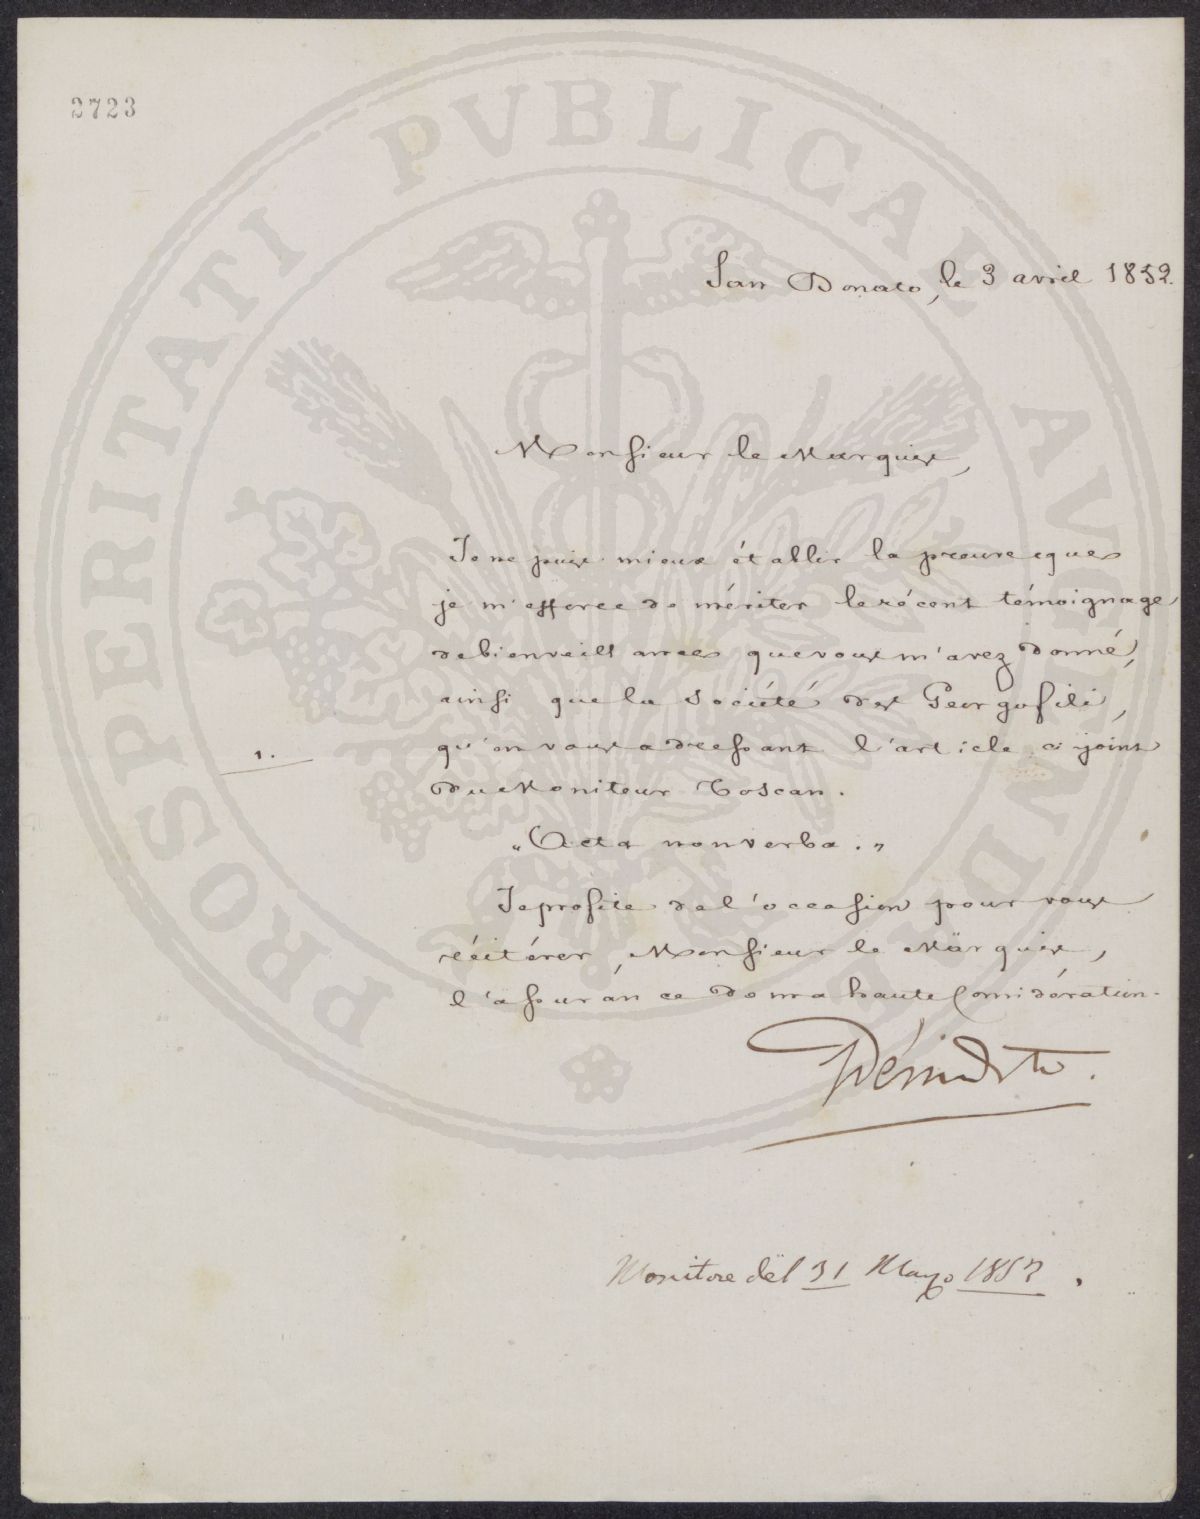 2723
PROSPERITATI PVBLICAE AVGENDAE
San Donato, le 3 avril 1852.
Monsieur le Marquis,
Je ne puis mieux établir la preuve que
je m'efforce de mériter le récent témoignage
de bienveillance que vous m'avez donné,
ainsi que la Société des Georgofili,
qu'en vous adressant l'article ci joint
1.
du Moniteur Toscan.
"Acta non verba."
Je profite de l'occasion pour vous
réitérer, Monsieur le Marquis,
l'assurance de ma haute Considération.
Monitore del 31 Marzo 1852.